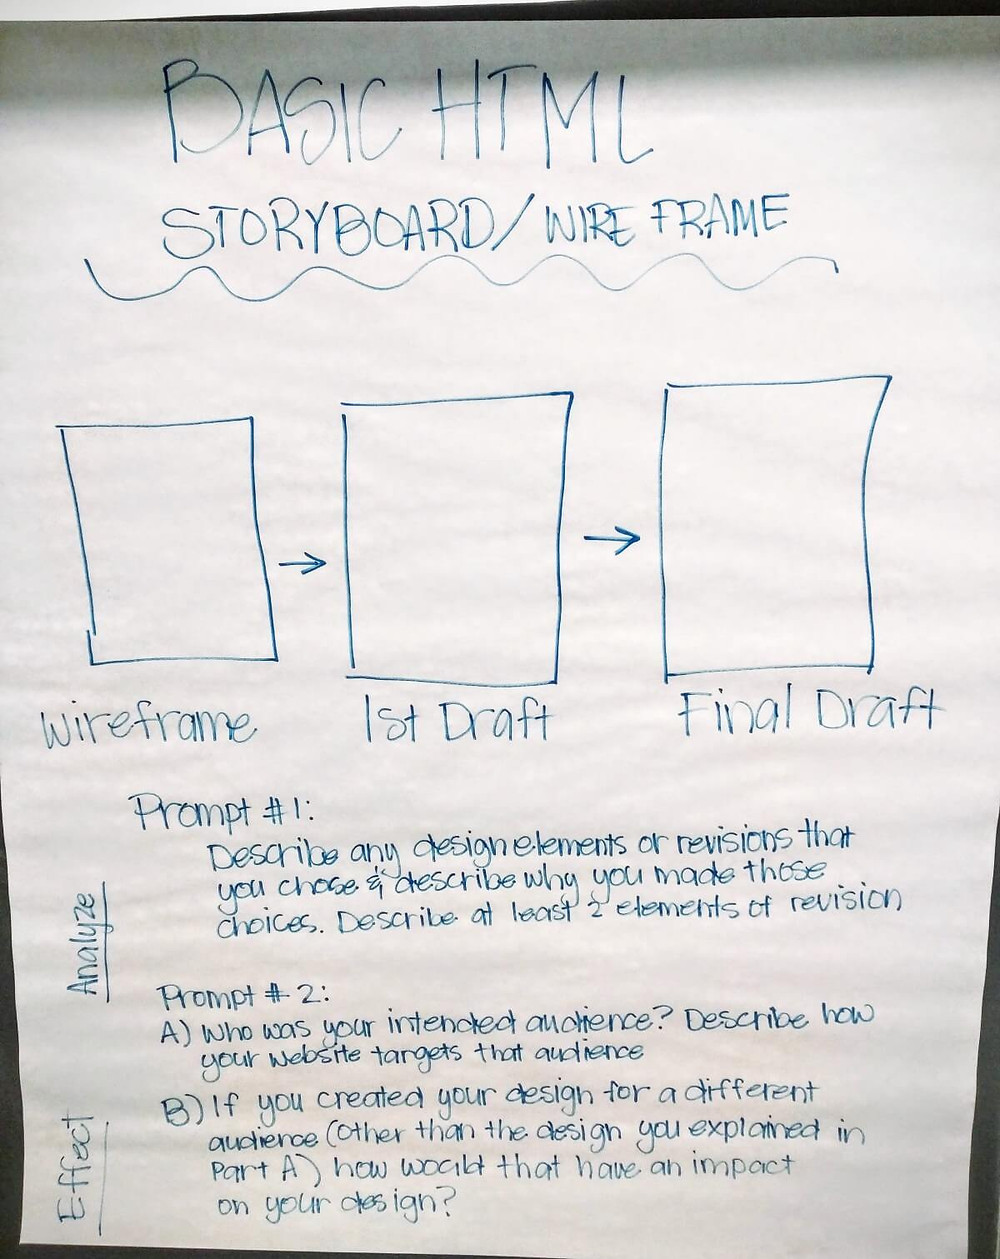 BASIC HTML
STORYBOARD/WIRE FRAME
Wireframe
1st Draft
Final Draft
Prompt #1:
Describe any design elements or revisions that
you chose & describe why you made those
choices. Describe at least 2 elements of revision
Analyze
Prompt # 2:
A) Who was your intended audience? Describe how
your website targets that audience
B) If you created your design for a different
audience (other than the design you explained in
Part A) how would that have an impact
on your design?
Effect